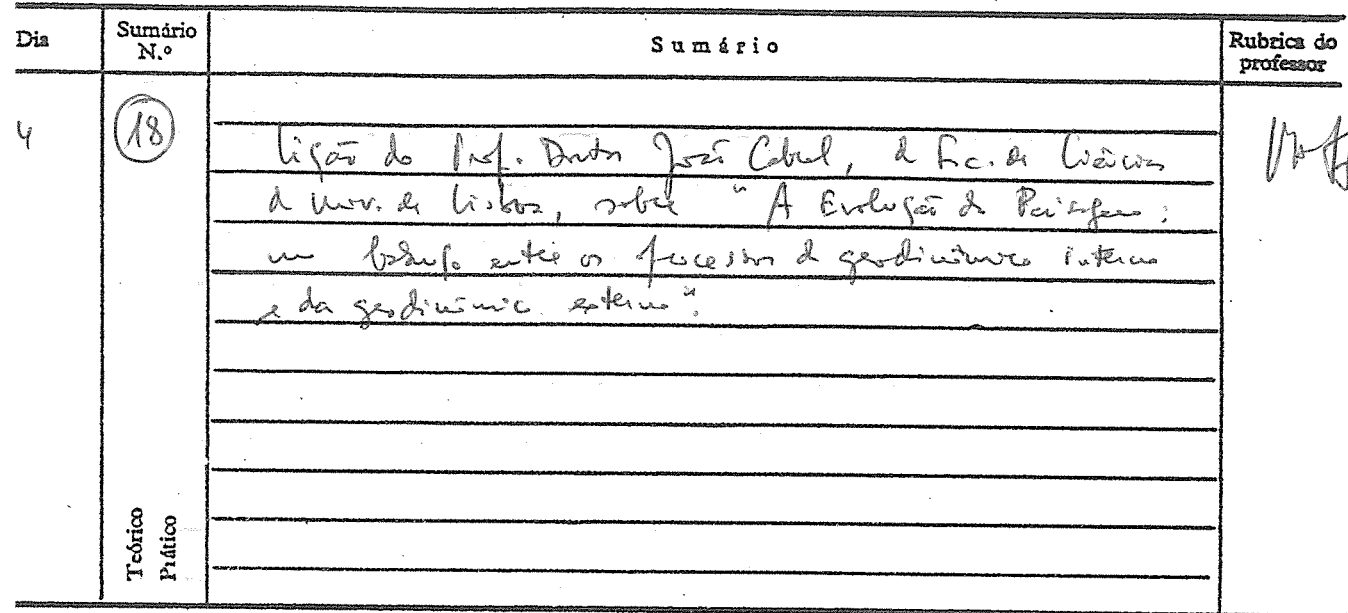 Dia
Sumário N.º
Sumário
Rubrica do professor
4
18
Lição do Prof. Doutor João Cabral, da Fac. de Ciências
da Univ. de Lisboa, sobre "A Evolução da Paisagem:
um balanço entre os processos da geodinâmica interna
e da geodinâmica externa".
Teórico
Prático